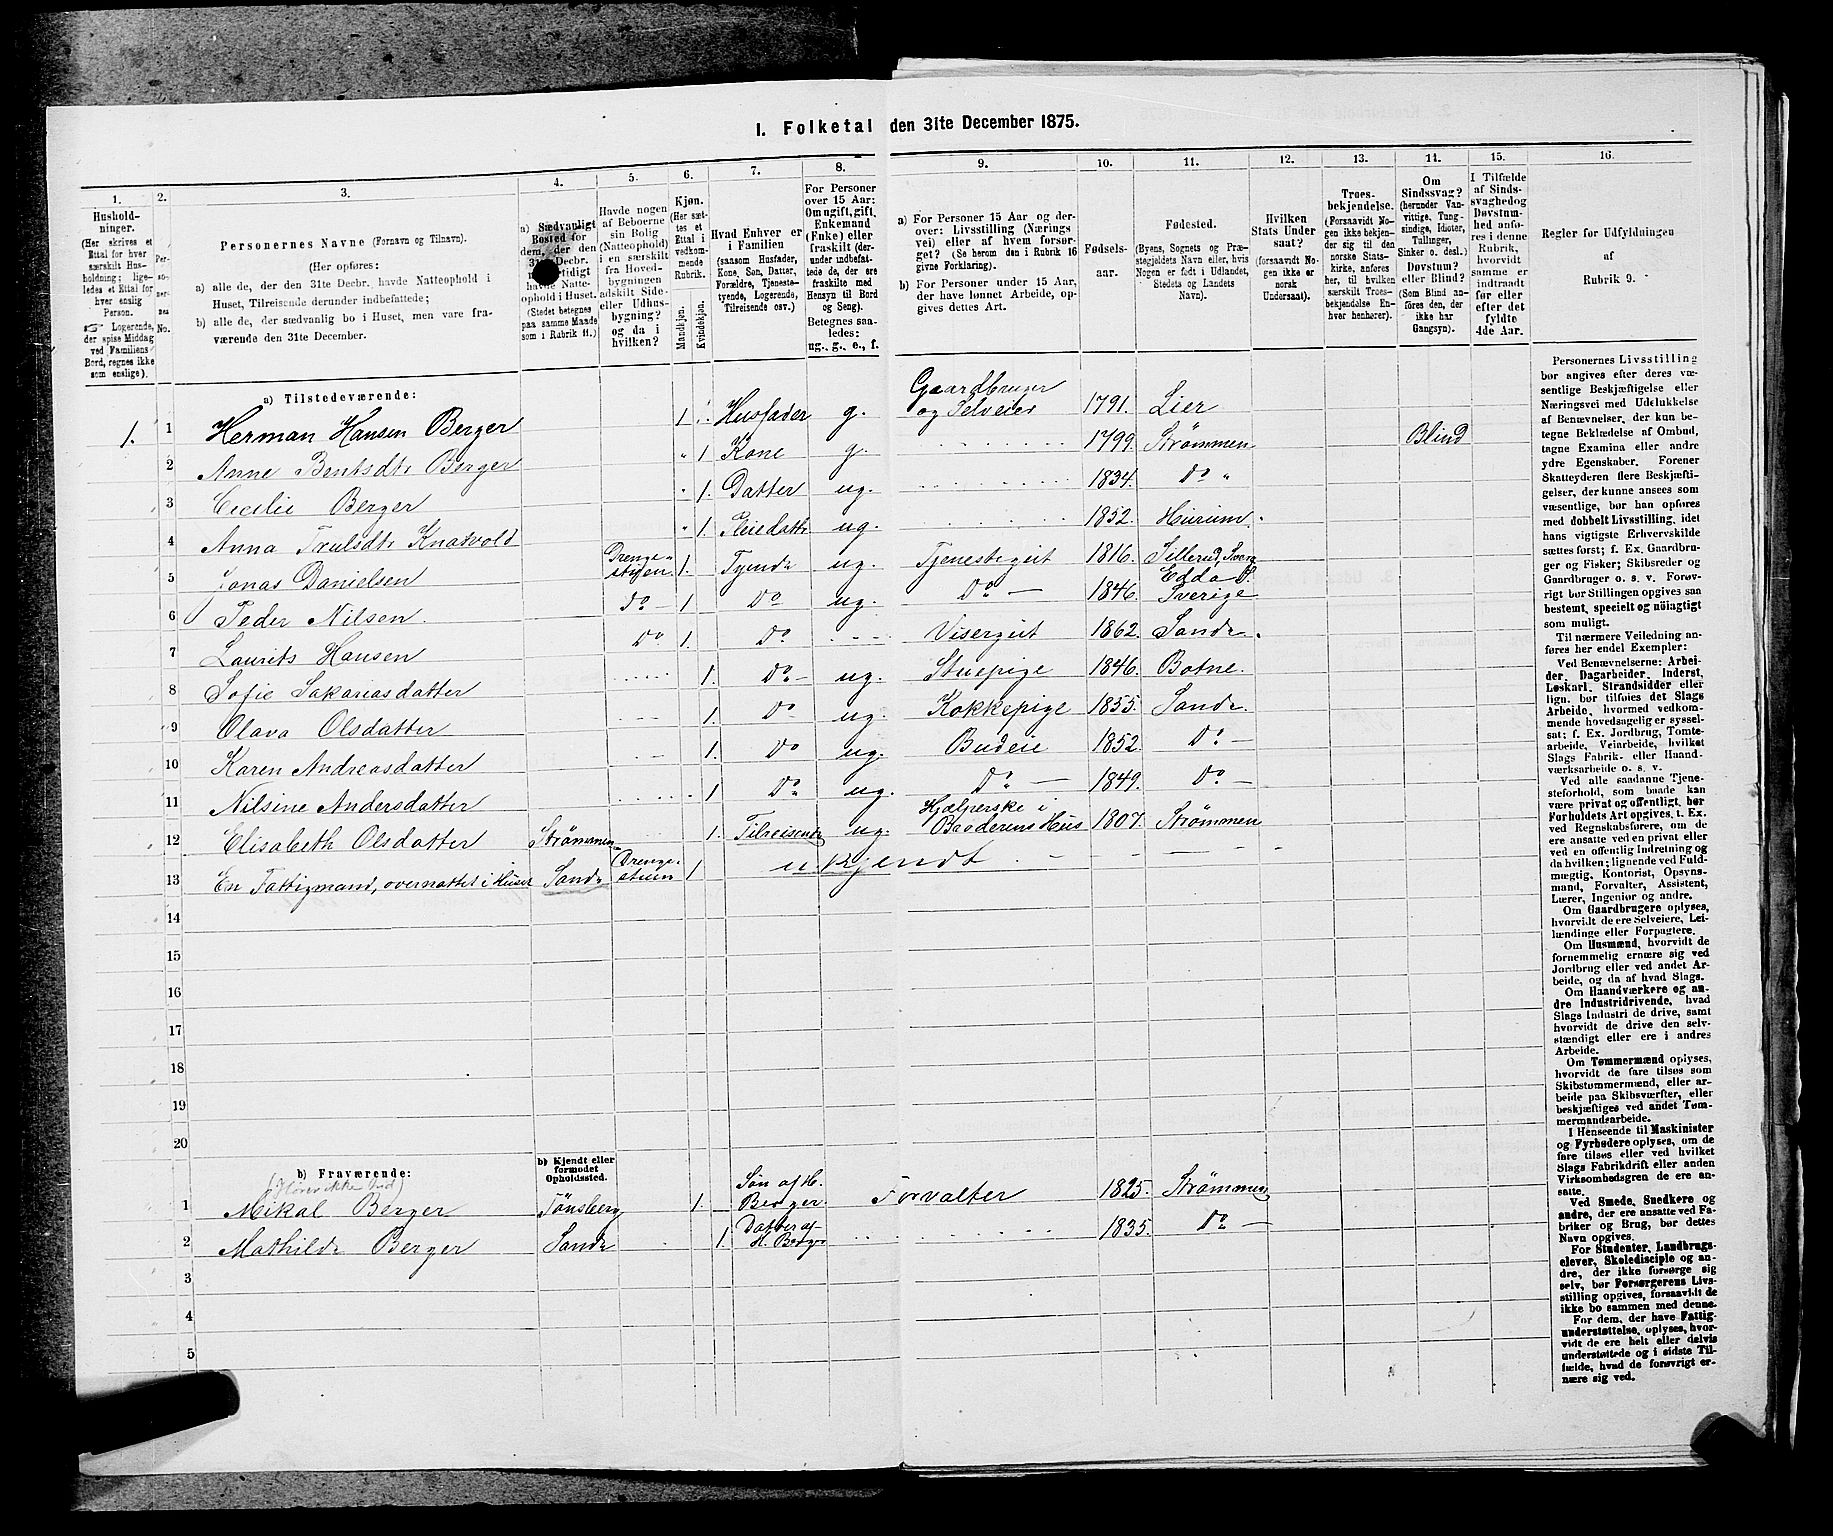 I. Folketal den 31te December 1875.
1. 2. 3. 4. 5. 6. 7. 8. 9. 10. 11. 12. 13. 14. 15. 16.
Hushold-
ninger.
(Her skrives et
Ettal for hver
særskilt Hus-
holdning; lige-
ledes et Ettal for
hver enslig
Person.
☞ Logerende,
der spise Middag
ved Familiens
Bord, regnes ikke
som enslige).
Per-
so-
ner-
nes
No.
Personernes Navne (Fornavn og Tilnavn).
(Her opføres:
a) alle de, der den 31te Decbr. havde Natteophold i
Huset, Tilreisende derunder indbefattede;
b) alle de, der sædvanlig bo i Huset, men vare fra-
værende den 31te December.
a) Sædvanligt
Bosted for
dem, der den
31te Decbr.
midlertidigt
havde Natte-
ophold i Huset.
(Stedet betegnes
paa samme Maade
som i Rubrik 11.)
Havde nogen
af Beboerne
sin Bolig
(Natteophold)
i en særskilt
fra Hoved-
bygningen
adskilt Side-
eller Udhus-
bygning?
og da i
hvilken?
Kjøn.
(Her sæt-
tes et
Ettal i
vedkom-
mende
Rubrik.
Mandkjøn.
Kvindekjøn.
Hvad Enhver er
i Familien
(saasom Husfader,
Kone, Søn, Datter,
Forældre, Tjeneste-
tyende, Logerende,
Tilreisende osv.)
For Personer
over 15 Aar:
Om ugift, gift,
Enkemand
(Enke) eller
fraskilt (der-
under indbefat-
tede de, der ere
fraskilte med
Hensyn til Bord
og Seng).
Betegnes saa-
ledes:
ug., g., e., f.
a) For Personer 15 Aar og der-
over: Livsstilling (Nærings
vei) eller af hvem forsør-
get? (Se herom den i Rubrik 16
givne Forklaring).
b) For Personer under 15 Aar,
der have lønnet Arbeide, op-
gives dettes Art.
Fødsels-
aar.
Fødested.
(Byens, Sognets og Præ-
stegjeldets Navn eller, hvis
Nogen er født i Udlandet,
Stedets og Landets
Navn).
Hvilken
Stats Under
saat?
(forsaavidt No-
gen ikke er
norsk
Undersaat).
Troes-
bekjendelse.
(Forsaavidt No-
gen ikke bekjen-
der sig til den
norske Stats-
kirke, anføres
her, til hvilken
særskilt Troes-
bekjendelse En-
hver henhører).
Om
Sindssvag?
(herunder Van-
vittige, Tung-
sindige, Idioter,
Tullinger,
Sinker o. desl.)
Døvstum?
eller Blind?
(Som Blind an-
føres den, der
ikke har
Gangsyn).
I Tilfælde
af Sinds-
svaghed og
Døvstum-
hed anfø-
res i denne
Rubrik,
hvorvidt
samme er
indtraadt
før eller
efter det
fyldte
4de Aar.
Regler for Udfyldningen
af
Rubrik 9.
a) Tilstedeværende:
1. 1 Herman Hansen Berger 1 Husfader g. Gaardbruger og Selveier 1791. Lier
2 Anne Bentsdtr Berger " 1 Kone g. 1799. Strømmen Blind
3 Cecilie Berger " 1. Datter ug. 1834. Do "
4 Anna Trulsdtr Knatvold " 1. Pleiedattr ug. 1852. Hurum
5 Jonas Danielsen Drenge-stuen 1. Tyende ug. Tjenestegut 1816. Sillerud, Sverg
6 Peder Nilsen. Do 1 Do ug. Do 1846. Edda S. Sverige
7 Laurits Hansen Do 1. Do Visergut 1862. Sande
8 Sofie Sakariasdatter 1. Do ug. Stuepige 1846. Botne.
9 Olava Olsdatter 1. Do ug. Kokkepige 1855. Sande
10 Karen Andreasdatter 1. Do ug. Budeie 1852 Do
11 Nilsine Andersdatter 1 Do ug. Do 1849. Do
12 Elisabeth Olsdatter Strømmen 1. Tilreisende ug. Hjælperske i Broderens Hus 1807. Strømmen
13 En Fattigmand, overnattet i Huset Sande Drenge-stuen 1 ukjendt
14
15
16
17
18
19
20
b) Fraværende:
b) Kjendt eller
formodet
Opholdssted.
1 Mikal Berger Tönsberg 1. Søn af H. Berger Forvalter 1825. Strømmen
2 Mathilde Berger Sande 1. Datter af H. Berger 1835. Do
3
4
5
Personernes Livsstilling
bør angives efter deres væ-
sentlige Beskjæftigelse eller
Næringsvei med Udelukkelse
af Benævnelser, der kun be-
tegne Beklædelse af Ombud,
tagne Examina eller andre
ydre Egenskaber. Forener
Skatteyderen flere Beskjæfti-
gelser, der kunne ansees som
væsentlige, bør han opføres
med dobbelt Livsstilling, idet
hans vigtigste Erhvervskilde
sættes først; f. Ex. Gaardbru-
ger og Fisker; Skibsreder og
Gaardbruger o. s. v. Forøv-
rigt bør Stillingen opgives saa
bestemt, specielt og nöiagtigt
som muligt.
Til nærmere Veiledning an-
føres her endel Exempler:
Ved Benævnelserne: Arbei-
der, Dagarbeider, Inderst,
Løskarl, Strandsidder eller
lign. bør tilføies det Slags
Arbeide, hvormed vedkom-
mende hovedsagelig er syssel-
sat; f. Ex. Jordbrug, Tomte-
arbeide, Veiarbeide, hvilket
Slags Fabrik- eller Haand-
værksarbeide o. s. v.
Ved alle saadanne Tjene-
steforhold, som baade kan
være privat og offentligt, bør
Forholdets Art opgives, t. Ex.
ved Regnskabsførere, om de
ere ansatte ved en privat eller
ved en offentlig Indretning og
da hvilken; lignende ved Fuld-
mægtig, Kontorist, Opsyns-
mand, Forvalter, Assistent,
Lærer, Ingeniør og andre.
Om Gaardbrugere oplyses,
hvorvidt de ere Selveiere, Lei-
lændinge eller Forpagtere.
Om Husmænd, hvorvidt de
fornemmelig ernære sig ved
Jordbrug eller ved andet Ar-
beide, og da af hvad Slags.
Om Haandværkere og an-
dre Industridrivende, hvad
Slags Industri de drive, samt
hvorvidt de drive den selv-
stændigt eller ere i andres
Arbeide.
Om Tømmermænd oplyses,
hvorvidt de fare tilsøs som
Skibstømmermænd, eller ar-
beide paa Skibsværfter, eller
beskjæftiges ved andet Tøm-
mermandsarbeide.
I Henseende til Maskinister
og Fyrbødere oplyses, om de
fare tilsøs eller ved hvilket
Slags Fabrikdrift eller anden
Virksomhedsgren de ere an-
satte.
Ved Smede, Snedkere og
andre, der ere ansatte ved Fa-
briker og Brug, bør dettes
Navn opgives.
For Studenter, Landbrugs-
elever, Skoledisciple og an-
dre, der ikke forsørge sig
selv, bør Forsørgerens Livs-
stilling opgives, forsaavidt de
ikke bo sammen med denne.
For dem, der have Fattig-
understøttelse, oplyses, hvor-
vidt de ere helt eller delvis
understøttede og i sidste Til-
fælde, hvad de forøvrigt er-
nære sig ved.